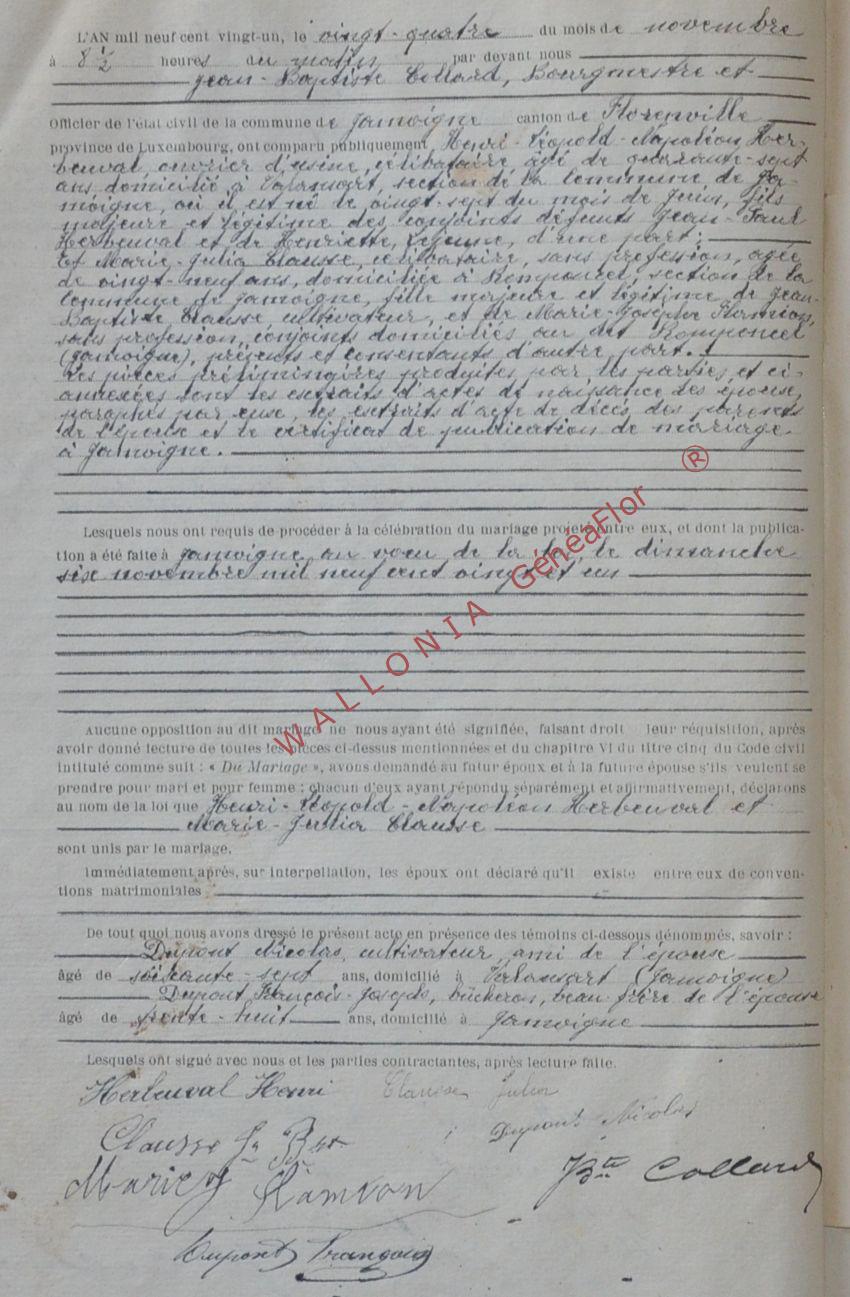 L'AN mil neuf cent vingt-un, le vingt-quatre du mois de novembre
à 8 1/2 heures du matin par devant nous
Jean-Baptiste Collard, Bourgmestre et
Officier de l'état civil de la commune de Jamoigne canton de Florenville
province de Luxembourg, ont comparu publiquement Henri-Léopold-Napoléon Her-
beuval, ouvrier d'usine, célibataire âgé de quarante-sept
ans, domicilié à Valansart, section de la Commune de Ja-
moigne, où il est né le vingt-sept du mois de Juin, fils
majeure et légitime des conjoints défunts Jean-Paul
Herbeuval et de Henriette, Lejeune, d'une part;
Et Marie-Julia Clausse, célibataire, sans profession, agée
de vingt-neuf ans, domiciliée à Romponcel, section de la
Commune de Jamoigne, fille majeure et légitime de Jean-
Baptiste Clausse, cultivateur, et de Marie-Josepha Flamion,
sans profession, conjoints domiciliés au dit Romponcel
(Jamoigne), présents et consentants d'autre part.
Les pièces préliminaires produites par les parties et ci-
annexées sont les extraits d'actes de naissance des épouse,
paraphés par euse, les extraits d'acte de décès des parents
de l'épouse et le certificat de publication de mariage
à Jamoigne.
Lesquels nous ont requis de procéder à la célébration du mariage projeté entre eux, et dont la publica-
tion a été faite à Jamoigne au voeu de la loi le dimanche
six novembre mil neuf cent vingt et un
Aucune opposition au dit mariage ne nous ayant été signifiée, faisant droit leur réquisition, après
avoir donné lecture de toutes les pièces ci-dessus mentionnées et du chapitre VI du titre cinq du Code civil
intitulé comme suit : « Du Mariage », avons demandé au futur époux et à la future épouse s'ils veulent se
prendre pour mari et pour femme : chacun d'eux ayant répondu séparément et affirmativement, déclarons
au nom de la loi que Henri-Léopold-Napoléon Herbeuval et
Marie-Julia Clausse
sont unis par le mariage.
Immédiatement après, sur interpellation, les époux ont déclaré qu'il existe entre eux de conven-
tions matrimoniales
De tout quoi nous avons dressé le présent acte en présence des témoins ci-dessous dénommés, savoir :
Dupont Nicolas, cultivateur, ami de l'épouse
âgé de soixante-sept ans, domicilié à Valansart (Jamoigne)
Dupont François-Joseph, bûcheron, beau-frère de l'épouse
âgé de trente-huit ans, domicilié à Jamoigne
Lesquels ont signé avec nous et les parties contractantes, après lecture faite.
Herbeuval Henri Clausse Julia
Clausse Jn Bte Dupont Nicolas
Marie J Flamion JBte Collard
Dupont François
WALLONIA GénéaFlor ®